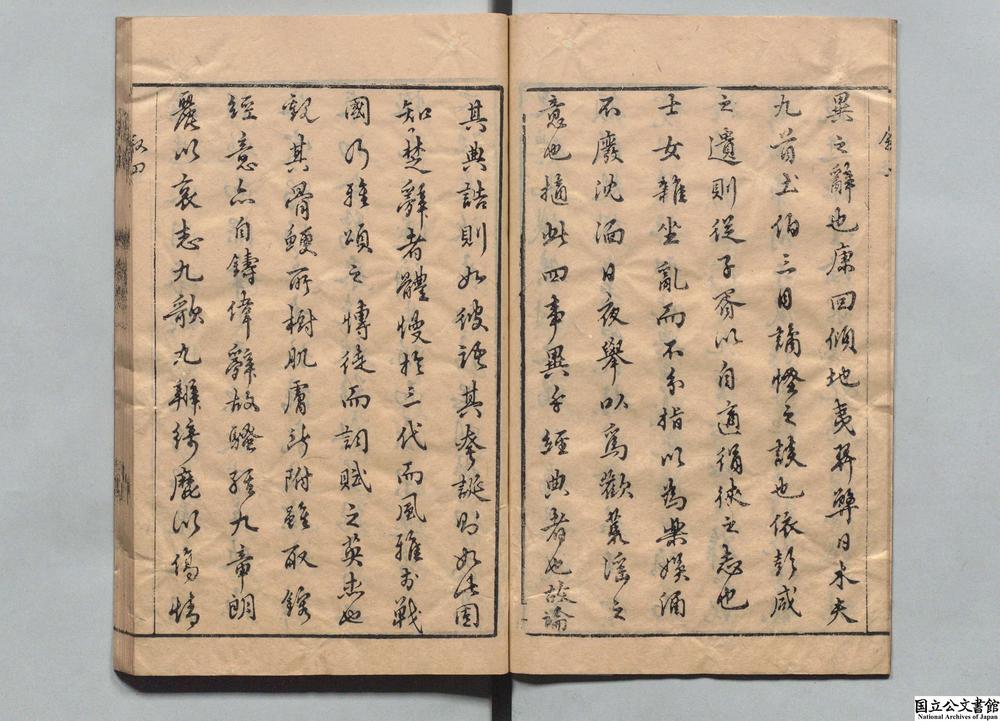 異之辭也康回傾地夷羿斃日木夫
九首土伯三目譎怪之談也依彭咸
之遺則從子胥以自適狷狹之志也
士女雜坐亂而不分指以為樂娛酒
不廢沈湎日夜舉以為歡荒淫之
意也摘此四事異乎經典者也故論
其典誥則如彼語其夸誕則如此固
知楚辭者體慢於三代而風雅於戰
國乃雅頌之博徒而詞賦之英杰也
觀其骨鯁所樹肌膚所附雖取鎔
經意亦自鑄偉辭故騷經九章朗
麗以哀志九歌九辯綺靡以傷情
国立公文書館
National Archives of Japan